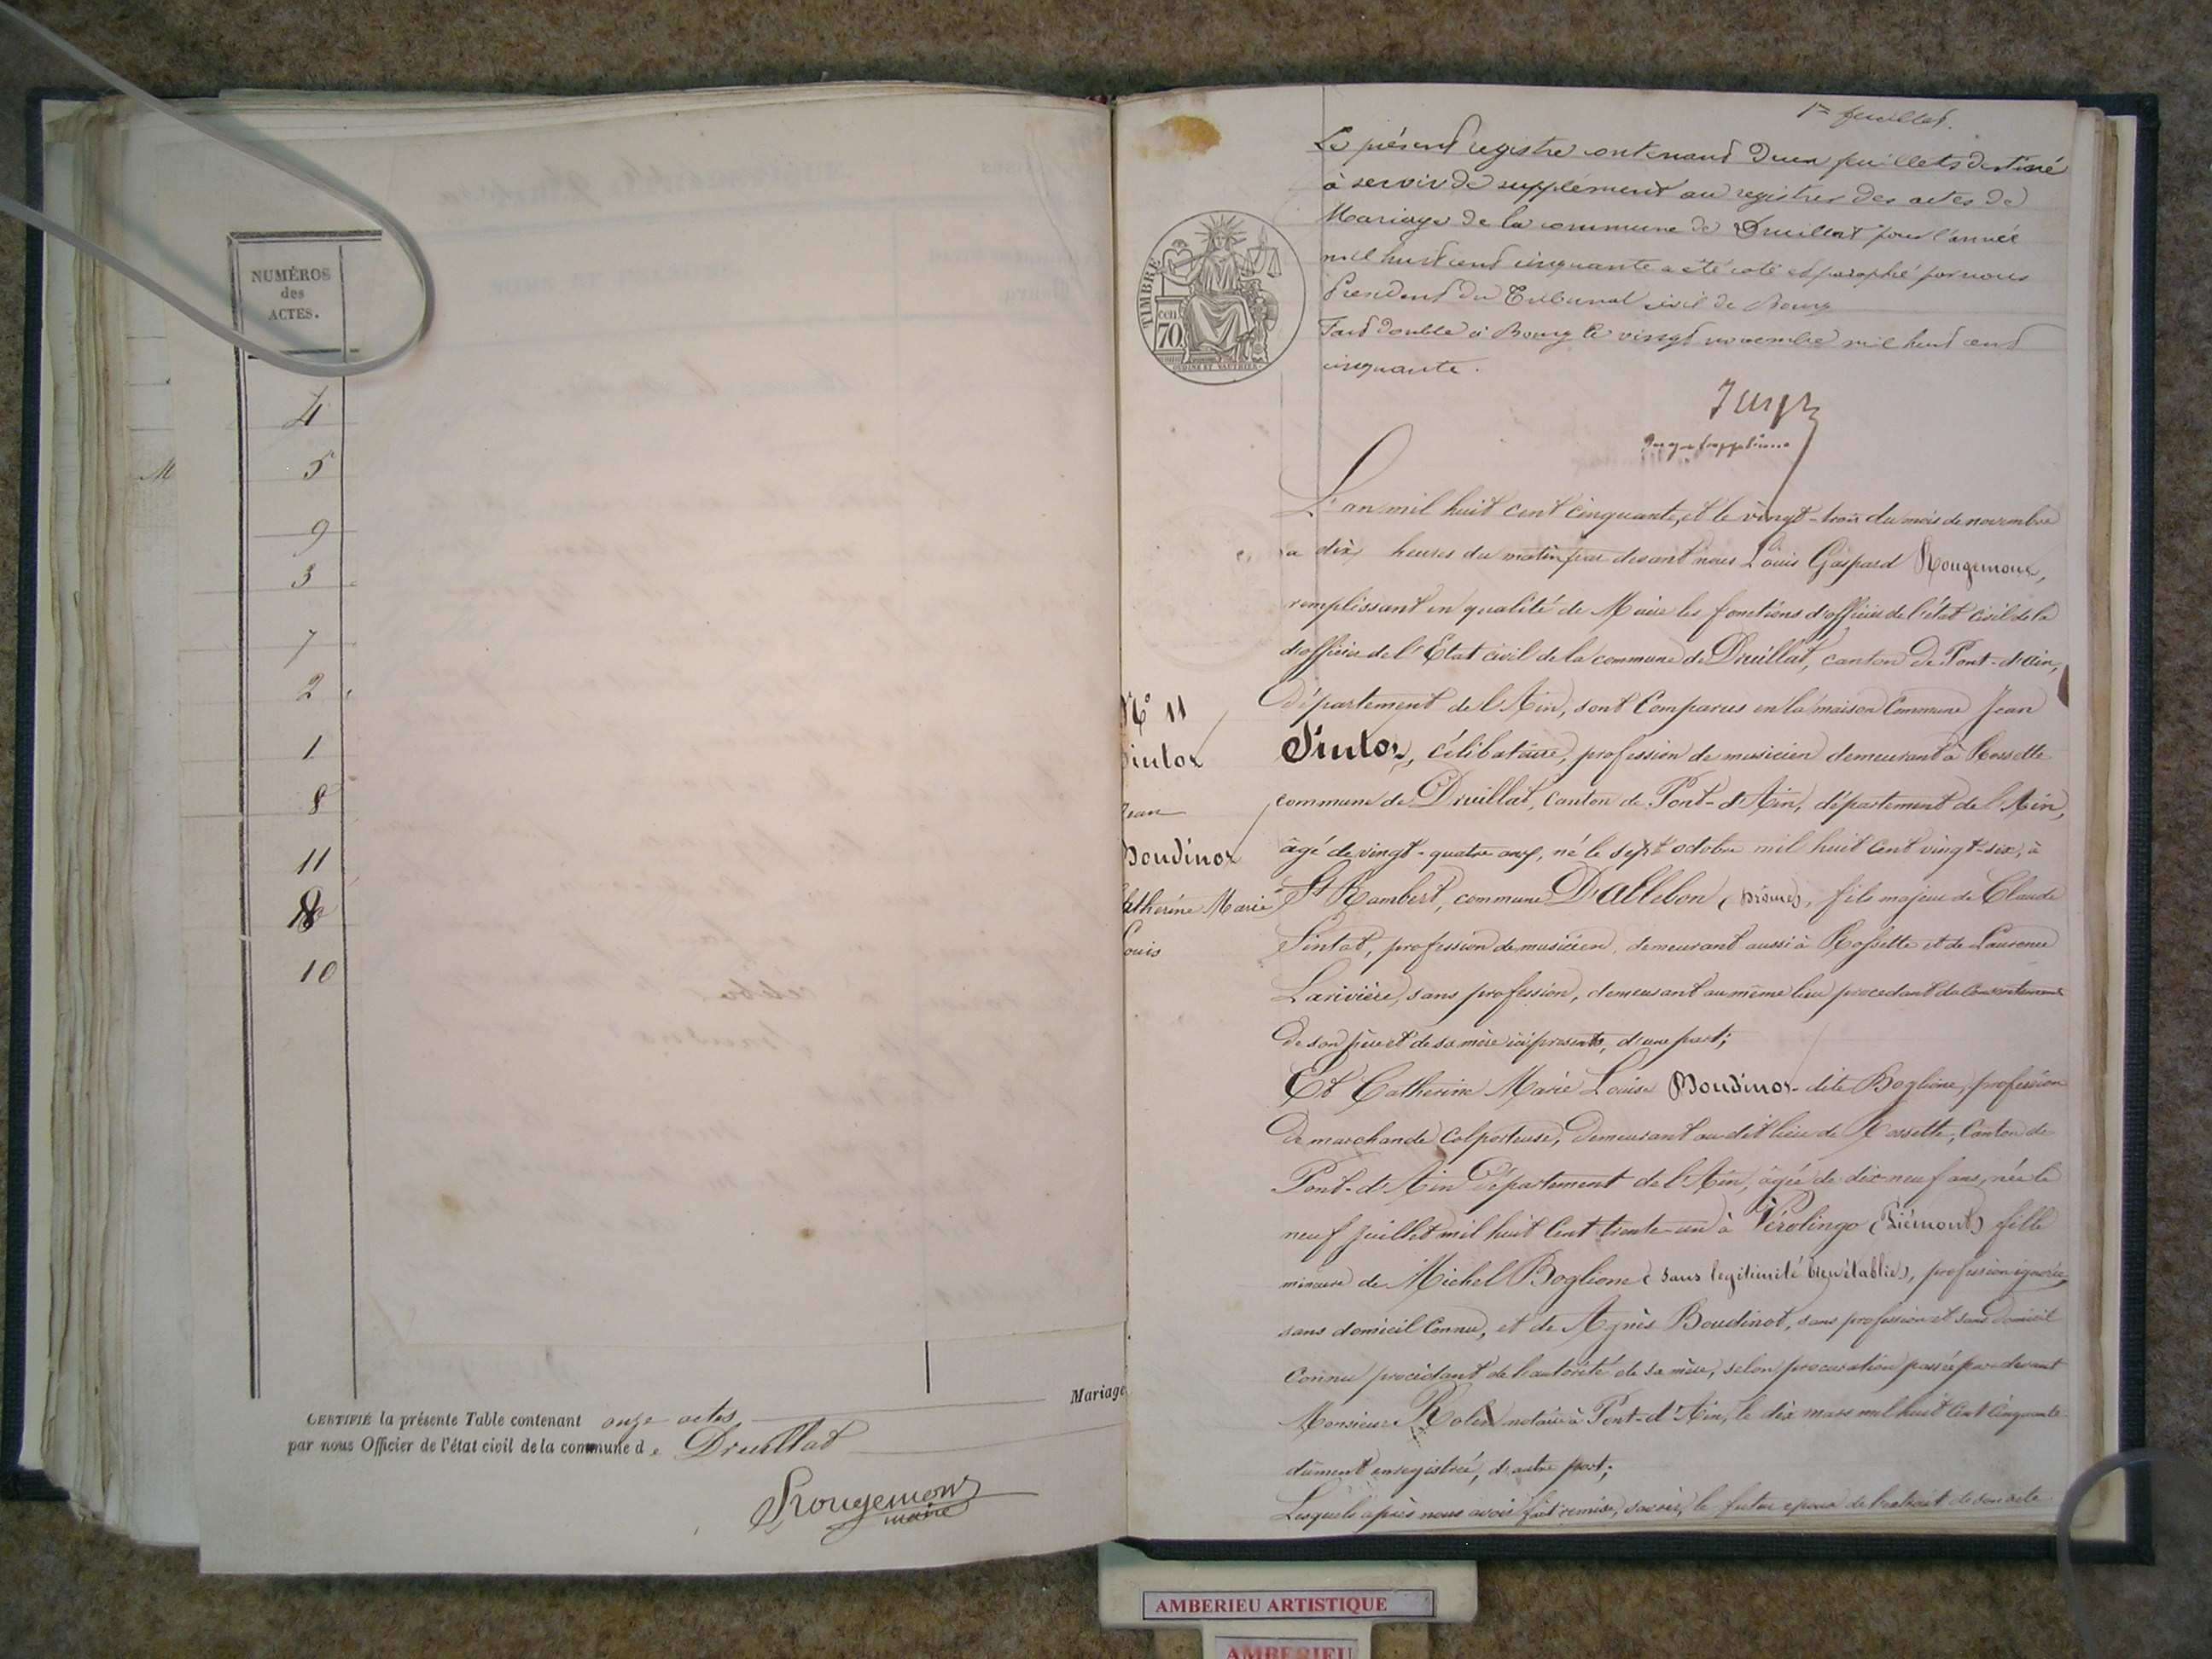 NUMÉROS
des
ACTES.
4
5
9
3
7
2
1
8
11
10
Mariage
CERTIFIÉ la présente Table contenant onze actes
par nous Officier de l'état civil de la commune de Druillat
Rougemont
maire
1er feuillet.
Le présent registre contenant deux feuillets destiné
à servir de supplément au registres des actes de
Mariage de la commune de Druillat pour l'année
mil huit cent cinquante a été coté et paraphé par nous
Président du Tribunal civil de Bourg
Fait double à Bourg le vingt novembre mil huit cent
cinquante.
TIMBRE
70 cen
L'an mil huit cent cinquante, et le vingt-trois du mois de novembre
à dix heures du matin par devant nous Louis Gaspard Rougemont,
remplissant en qualité de Maire les fonctions d'officier de l'état civil de la
d'officier de l'Etat civil de la commune de Druillat, canton de Pont-d'ain,
Département de l'Ain, sont Comparus en la maison Commune Jean
Sintot, célibataire, profession de musicien demeurant à Rossette
commune de Druillat, Canton de Pont-d'Ain, département de l'Ain,
âgé de vingt-quatre ans, né le sept octobre mil huit cent vingt-six, à
St Rambert, commune D'allebon (Drôme), fils majeur de Claude
Sintot, profession de musicien, demeurant aussi à Rossette et de Laurence
Larivière, sans profession, demeurant au même lieu procedant du Consentement
de son père et de sa mère ici présents, d'une part;
Et Catherine Marie Louise Boudinot dite Boglione, profession
de marchande Colporteuse, Demeurant au dit lieu de Rossette, Canton de
Pont-d'Ain Département de l'Ain, âgée de dix-neuf ans, née le
neuf juillet mil huit Cent trente-un à Vérolingo (Piémont) fille
mineure de Michel Boglione (sans legitimité bien établie), profession ignorée,
sans domicil Connu, et de Agnès Boudinot, sans profession et sans Domicil
Connu procédant de l'autorité de sa mère, selon procuration passée par devant
Monsieur Rolin notaire à Pont-d'Ain, le dix mars mil huit Cent Cinquante
dûment enregistrée, d'autre part;
Lesquels après nous avoir fait remise, savoir, le futur epoux de l'extrait de son acte
No 11
Sintot
Jean
Boudinot
Catherine Marie
Louis
AMBERIEU ARTISTIQUE
AMBERIEU